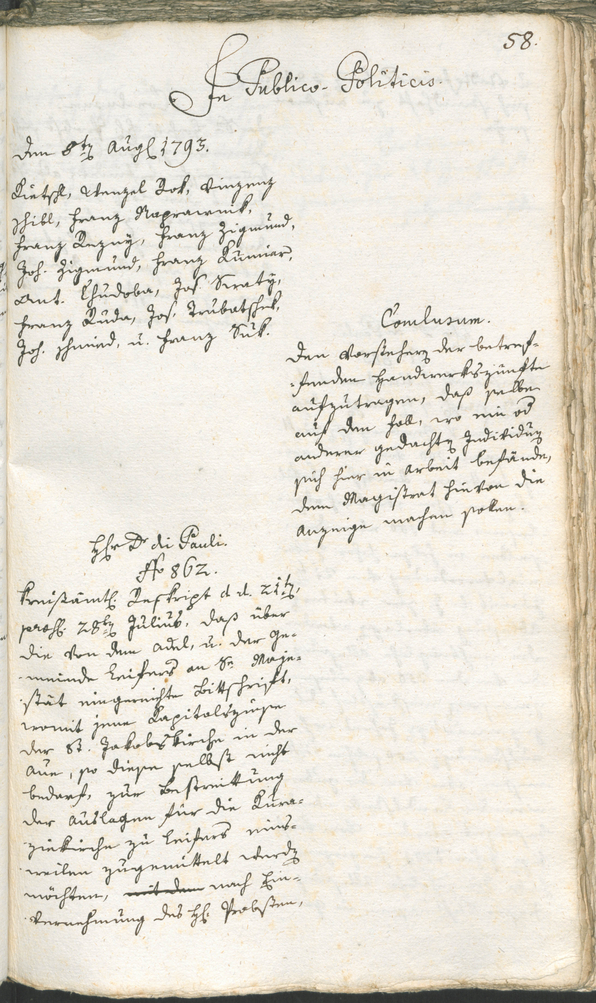 58.
In Publico-Politicis.
den 8ten Augl 1793.
Kietschl, Wenzel Bok, Vinzenz
Schibl, Franz Naprawnik,
Franz Rezny, Franz Zigmund,
Joh. Zigmund, Franz Kumier,
Ant. Chudoba, Jos. Siraty,
Franz Ruda, Jos. Trubatschek,
Joh. Schmied, u. Franz Suk.
Conclusum.
Den Vorstehern der betref-
-fenden Handwerkszünfte
aufzutragen, daß selbe
auf den Fall, wo ein od
anderer gedachten Individuen
sich hier in Arbeit befände,
dem Magistrat hievon die
Anzeige machen sollen.
Hhr Dr di Pauli.
No 862.
Kreisämtl. Reskript d. d. 21ten,
praes. 28ten Julius, daß über
die von dem Adel, u. der Ge-
-meinde Leifers an Sr. Maje-
stät eingereichte Bittschrift,
womit jene Kapitalszinse
der St. Jakobskirche in der
Aue, so diese selbst nicht
bedarf, zur Bestreittung
der Auslagen für die Kura-
zienkirche zu Leifers eins-
-weilen zugemittelt werden
möchten, mit dem nach Ein-
-vernehmung des Hh. Probsten,